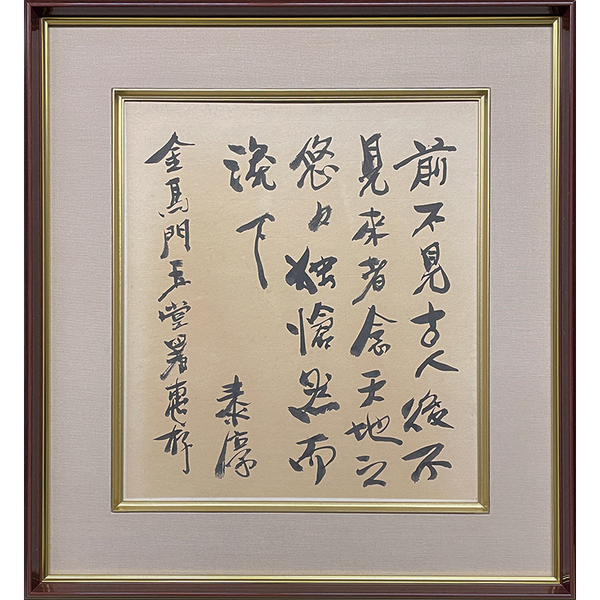 前不見古人後不
見来者念天地之
悠々独愴然而
涙下
泰淳
金馬門玉堂署惠存